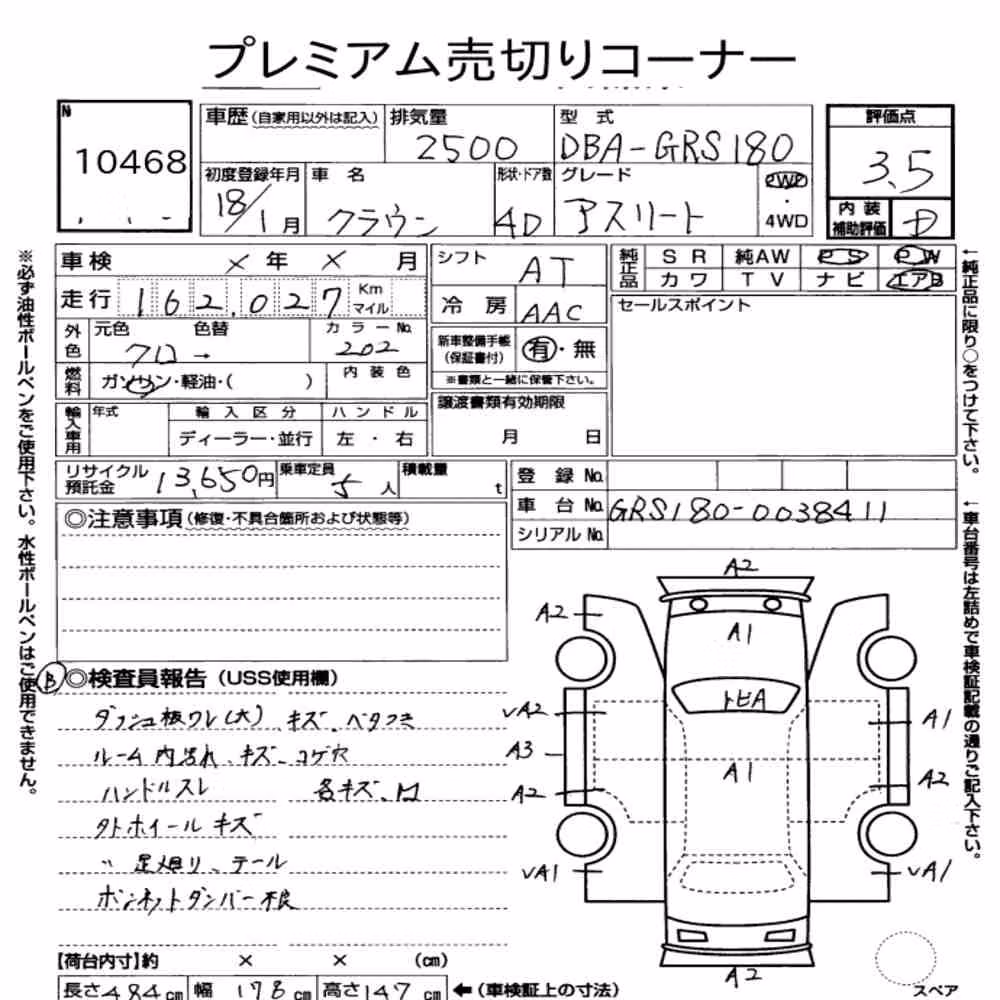 プレミアム売切りコーナー
№ 10468
車歴 (自家用以外は記入) 排気量 2500 型式 DBA-GRS180 評価点 3.5
初度登録年月 18/1月 車名 クラウン 形状・ドア数 4D グレード アスリート 2WD・4WD 内装補助評価 D
車検 × 年 × 月 シフト AT 純正品 SR 純AW PS PW
走行 162,027 Km マイル 冷房 AAC カワ TV ナビ エアB
外色 元色 クロ → 色替 カラーNo. 202 新車整備手帳 (保証書付) 有・無 セールスポイント
燃料 ガソリン・軽油・( ) 内装色 ※書類と一緒に保管下さい。
輸入車用 年式 輸入区分 ハンドル 譲渡書類有効期限
ディーラー・並行 左・右 月 日
リサイクル預託金 13,650円 乗車定員 5人 積載量 t 登録No.
車台No. GRS180-0038411
シリアルNo.
◎注意事項 (修復・不具合箇所および状態等)
B ◎検査員報告 (USS使用欄)
ダッシュ板ワレ(大) キズ ベタつき
ルーム内汚れ、キズ、コゲ穴
ハンドルスレ 各キズ、凹
タトホイール キズ
〃 足廻り、テール
ボンネットダンパー不良
A2
A2
A1
トビA
vA2
A1
A3
A1
A2
A2
vA1
vA1
A2
スペア
【荷台内寸】約 × × (cm)
長さ 484 cm 幅 178 cm 高さ 147 cm ←(車検証上の寸法)
※必ず油性ボールペンをご使用下さい。水性ボールペンはご使用できません。
←純正品に限り○をつけて下さい。
←車台番号は左詰めで車検証記載の通りご記入下さい。